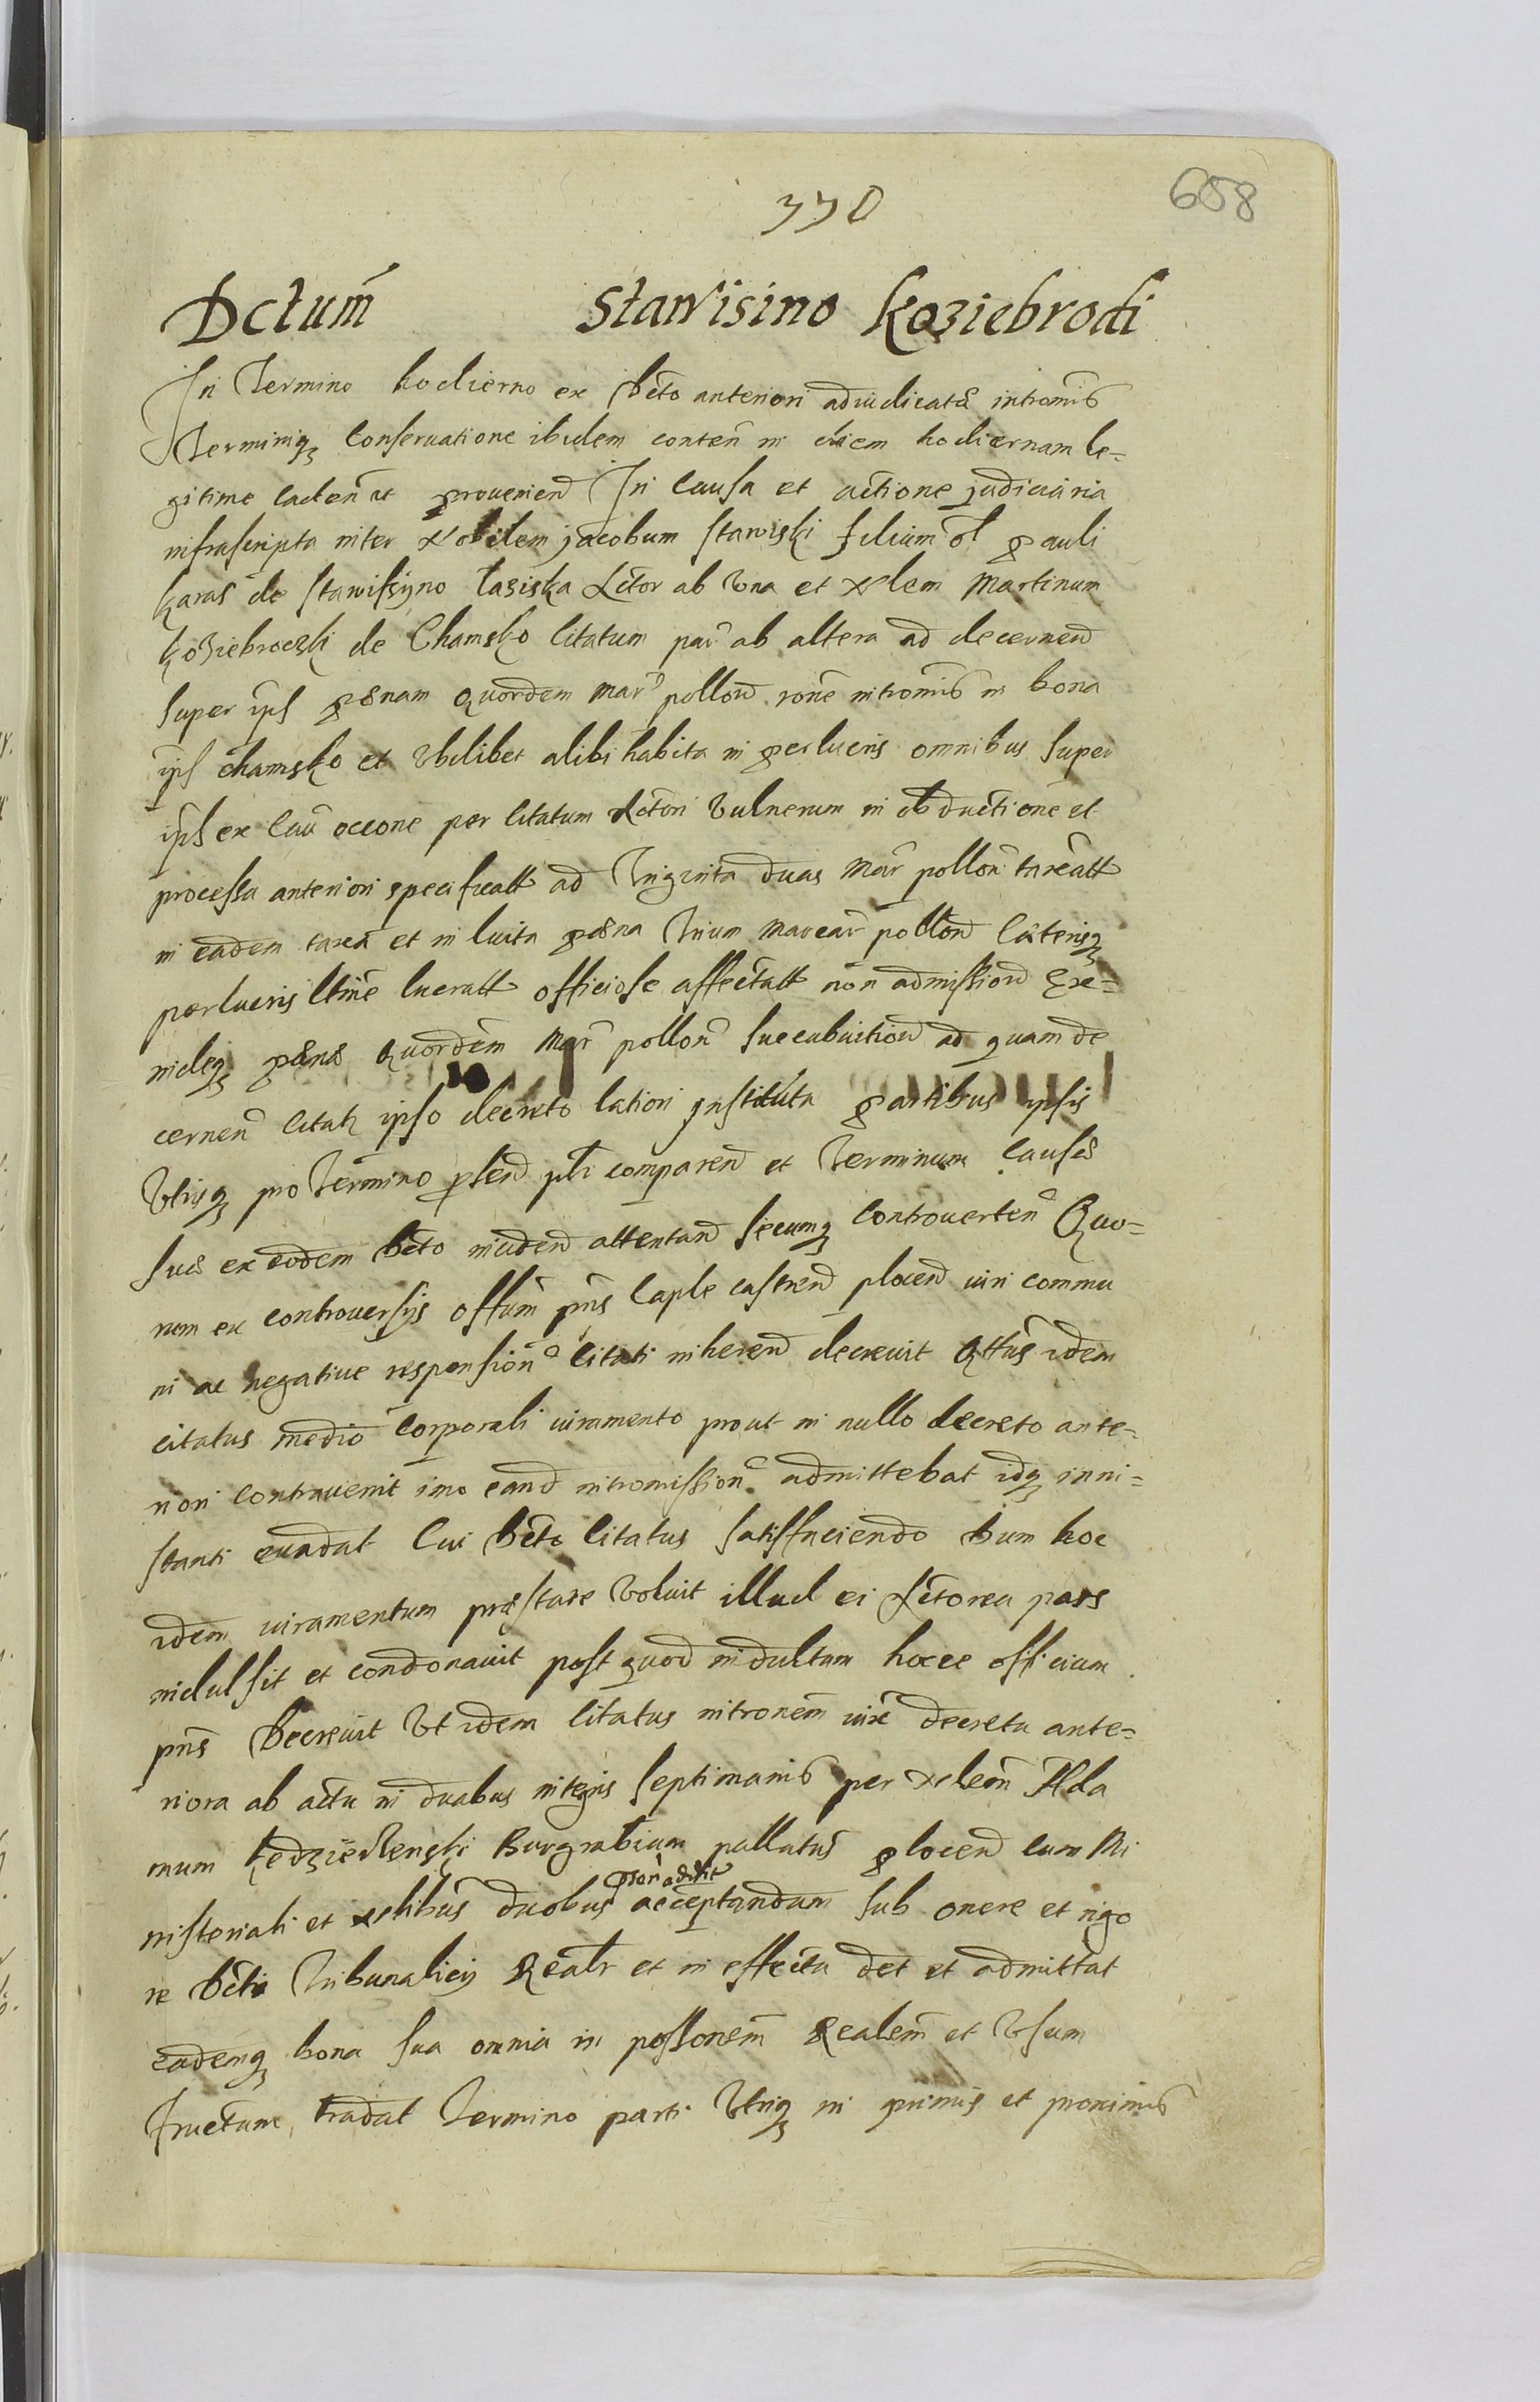 330
658
Dctum Stawisino Koziebrodi
In Termino hodierno ex Dcto anteriori adiudicatae intromis
Terminiq conseruatione ibidem conten in diem hodiernam le=
gitime caden ac prouenien In causa et actione judiciaria
infrascripta inter Nobilem jacobum stawiski filium ol pauli
karas de stawissyno Laziska Actor ab Una et Nlem Martinum
koziebroczki de Chamsko Citatum par ab altera ad decernend
super ips poenam Quordem mar pollon rone intromis in bona
ips chamsko et Vbilibet alibi habita in perlucris omnibus super
ips ex Cau occone per Citatum Actori Vulnerum in obductione et
processu anteriori specificatt ad Triginta duas mar pollon taxatt
in eadem taxa et in luita poena Trium marcar pollon Caeterisq
perlucris ltime lucratt officiose affectatt non admission Exe=
indeq poenae Quordem Mar pollon succubuition ad quam de
cernen Citat ipso decreto lation Instituta partibus ipsis
Vtrisq pro Termino pnti plr comparen et Terminum causae
suae ex eodem Dcto inciden attentan secumq controuerten Quo=
rum ex controuersijs offum pns Caple castren plocen iuri commu
ni ac negatiue responsion Citati inheren decreuit Qttus idem
citatus medio corporali iuramento prout in nullo decreto ante=
riori contrauenit imo eand intromission admittebat idq inni=
stanti euadat Cui Dcto Citatus satisfaciendo dum hoc
idem iuramentum praestare Voluit illud ei Actorea pars
indulsit et condonauit post quod indultum hocce officium
pns Decreuit Vt idem Citatus intronem iuxe decreta ante=
riora ab actu in duabus integris septimanis per Nleom Ada
mum kędzierzenski Burgrabium pallatus plocen cum Mi
nisteriali et Nlibus duobus acceptandam sub onere et rigo
re Dcti Tribunalicij Realr et in effectu det et admittat
eademq bona sua omnia in possonem Realem et Vsum
fructum tradat Termino parti Vtriq in primis et proximis